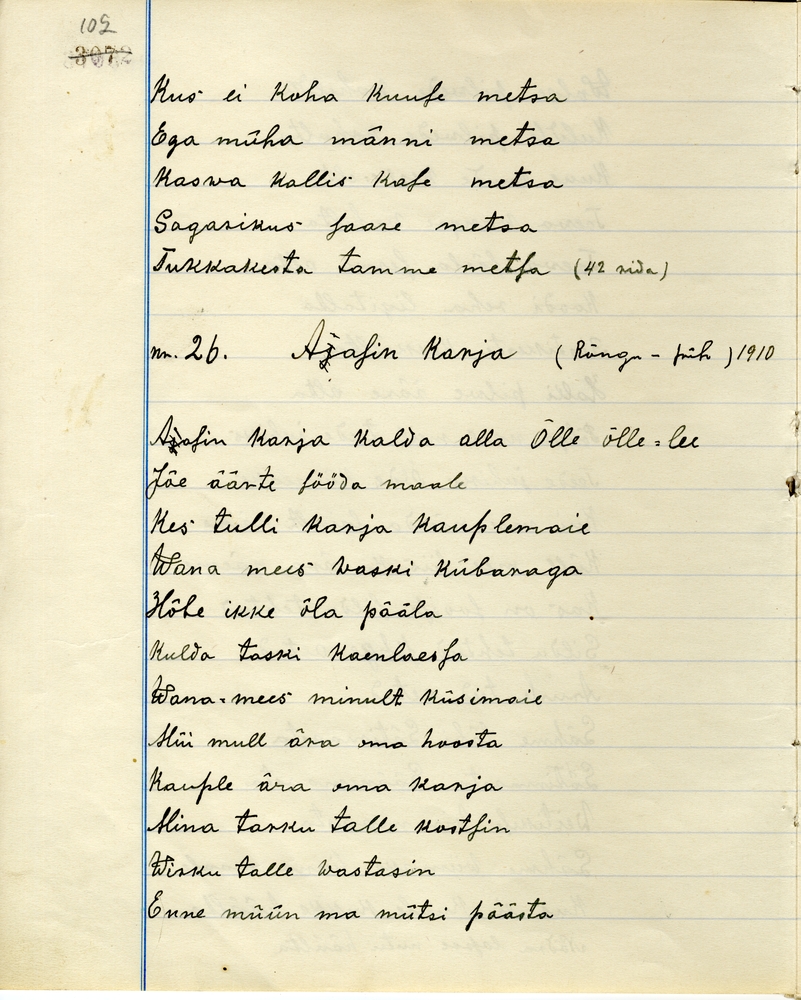 102
3072
Kus ei koha kuuse metsa
Ega müha männi metsa
Kaswa kallis kase metsa
Sagarikus saare metsa
Tukkakesta tamme metsa (42 rida)
nr. 26. Ajasin karja (Rõngu - prih) 1910
Ajasin karja kalda alla Õlle õlle=lee
Jõe äärte sööda maale
Kes tulli karja kauplemaie
Wana mees waski kübaraga
Hõbe ikke õla pääla
Kulda taski kaenlaessa
Wana=mees minult küsimaie
Müü mull ära oma hoosta
Kauple ära oma karja
Mina tarku talle kostsin
Wirku talle wastasin
Enne müün ma mütsi päästa